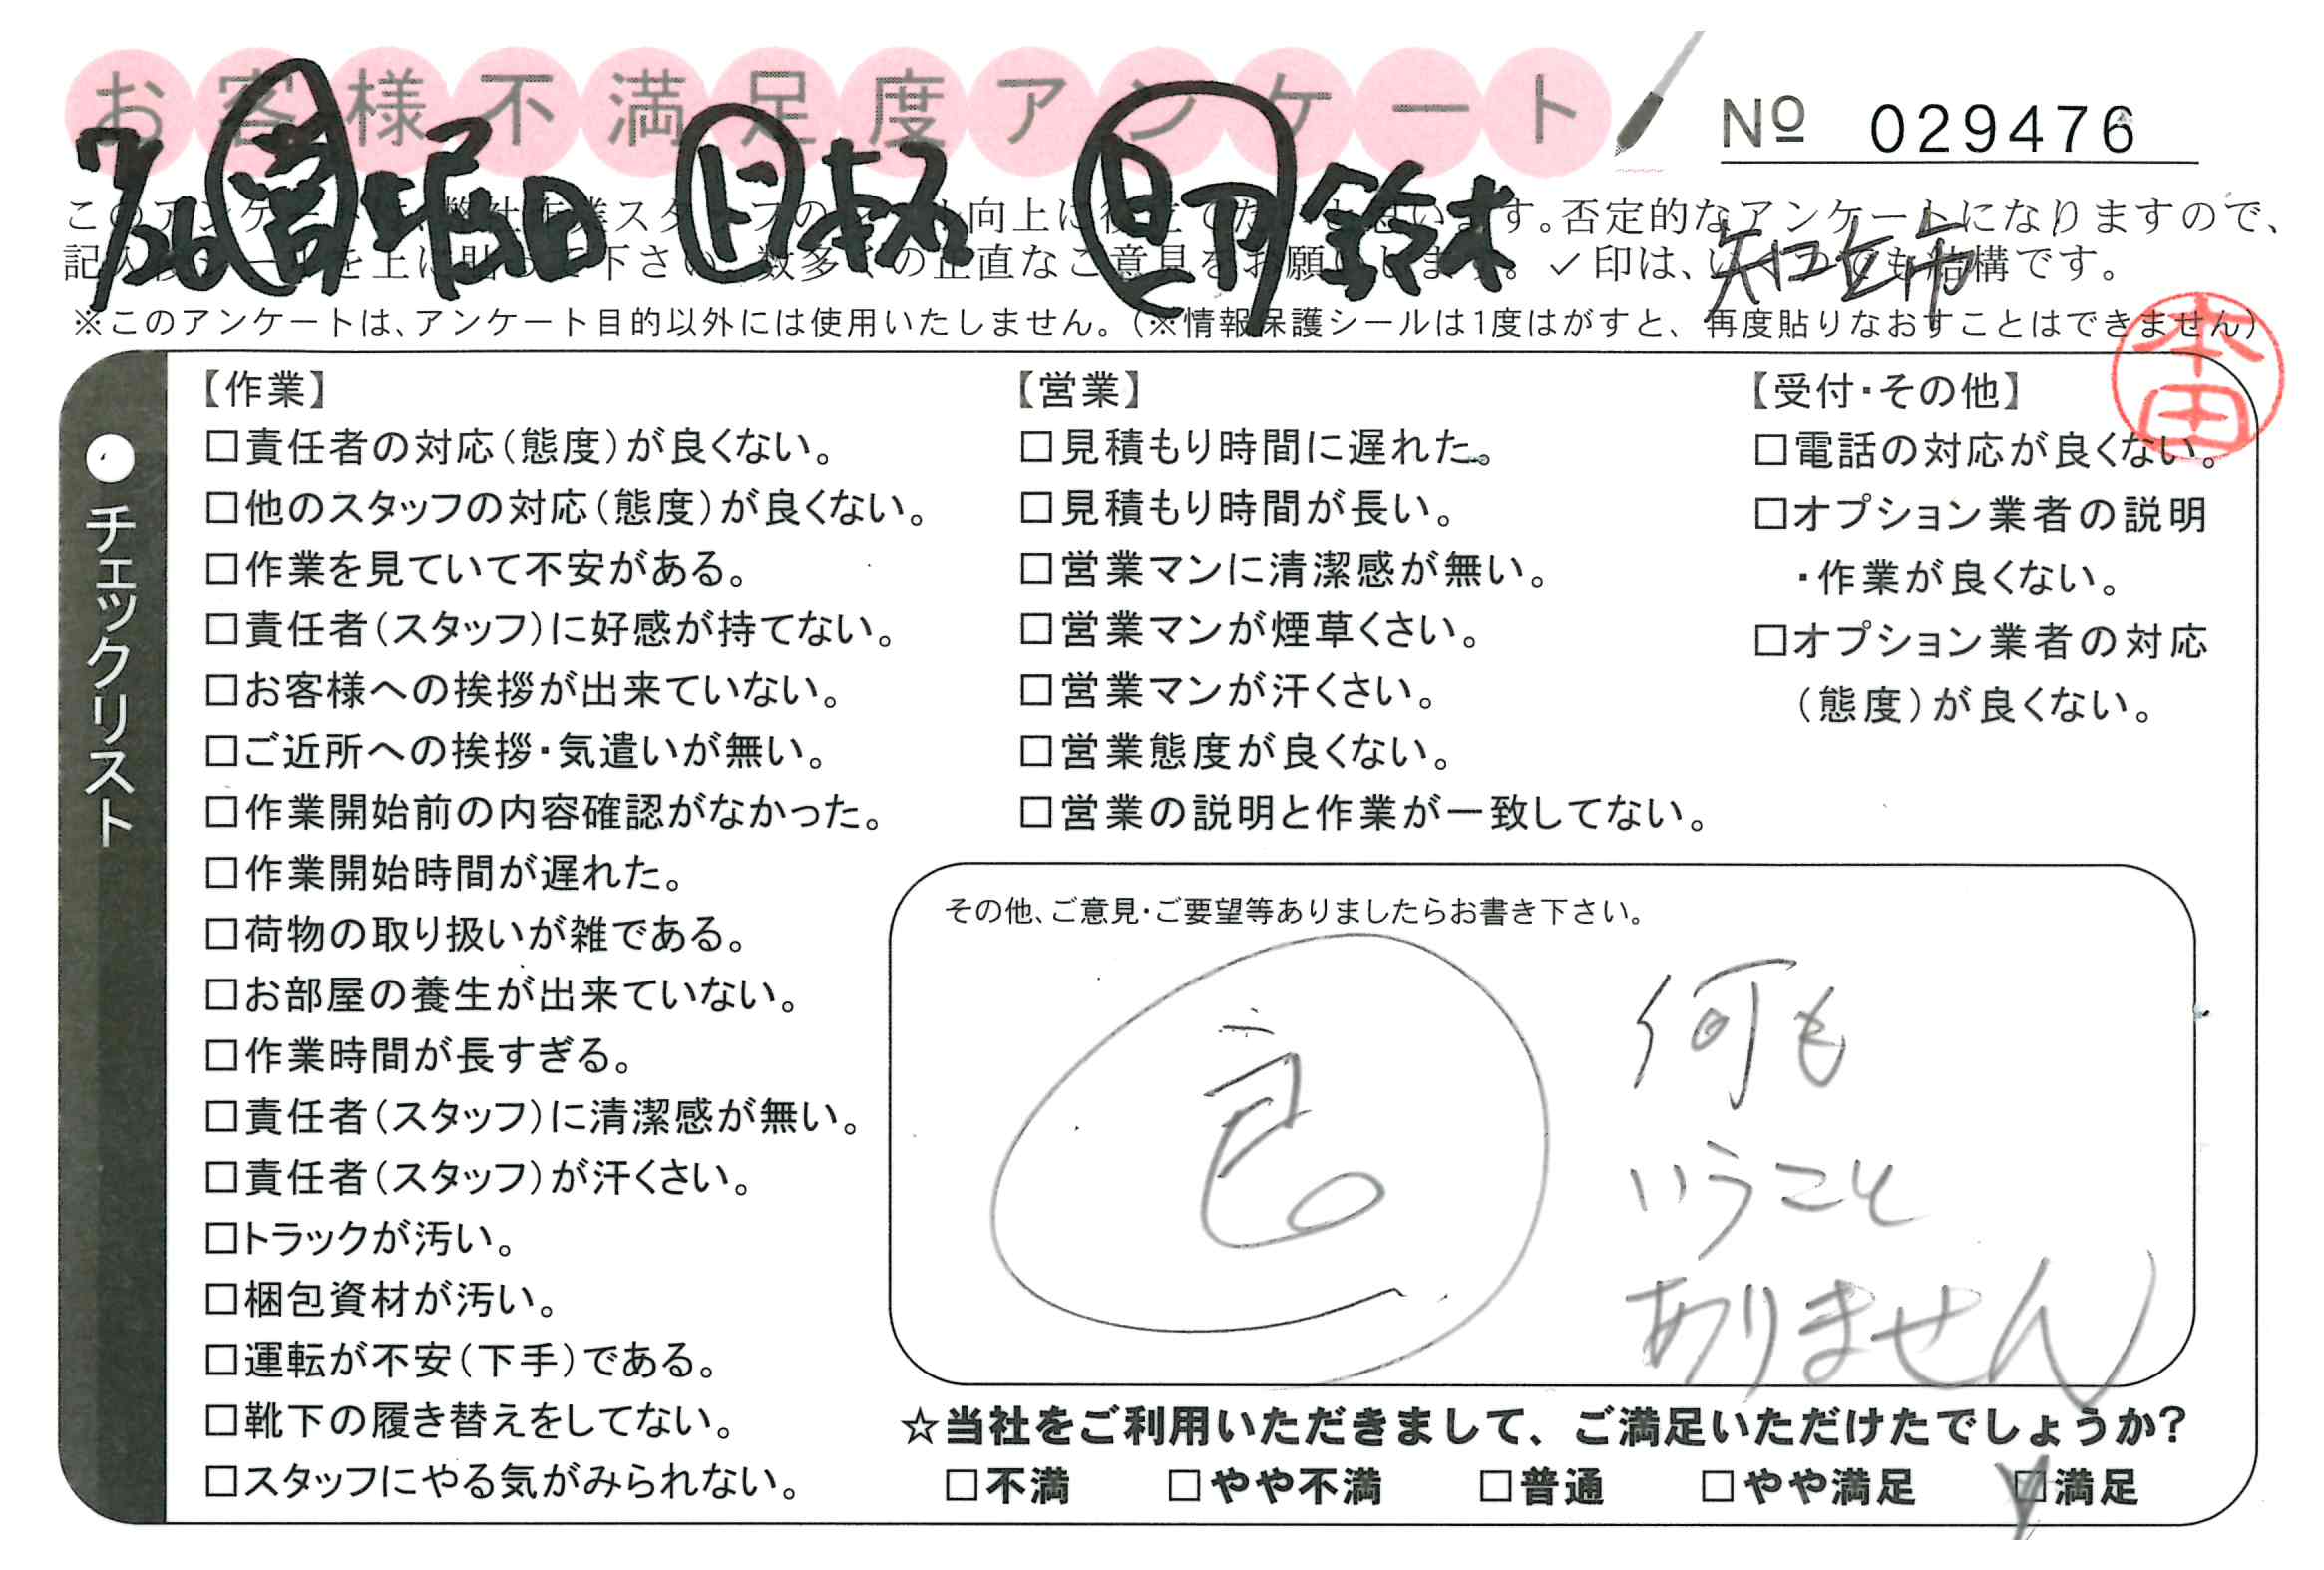 お客様不満足度アンケート
No 029476
7/26 営 堀田 ト 本松 助 鈴木
知立市
このアンケートは、弊社作業スタッフの向上に役立てたいと思います。否定的なアンケートになりますので、
記入後シールを上に貼って下さい。数多くの正直なご意見をお願いします。✓印は、いくつでも結構です。
※このアンケートは、アンケート目的以外には使用いたしません。(※情報保護シールは1度はがすと、再度貼りなおすことはできません)
本田
●チェックリスト
【作業】
□責任者の対応(態度)が良くない。
□他のスタッフの対応(態度)が良くない。
□作業を見ていて不安がある。
□責任者(スタッフ)に好感が持てない。
□お客様への挨拶が出来ていない。
□ご近所への挨拶・気遣いが無い。
□作業開始前の内容確認がなかった。
□作業開始時間が遅れた。
□荷物の取り扱いが雑である。
□お部屋の養生が出来ていない。
□作業時間が長すぎる。
□責任者(スタッフ)に清潔感が無い。
□責任者(スタッフ)が汗くさい。
□トラックが汚い。
□梱包資材が汚い。
□運転が不安(下手)である。
□靴下の履き替えをしてない。
□スタッフにやる気がみられない。
【営業】
□見積もり時間に遅れた。
□見積もり時間が長い。
□営業マンに清潔感が無い。
□営業マンが煙草くさい。
□営業マンが汗くさい。
□営業態度が良くない。
□営業の説明と作業が一致してない。
【受付・その他】
□電話の対応が良くない。
□オプション業者の説明
・作業が良くない。
□オプション業者の対応
(態度)が良くない。
その他、ご意見・ご要望等ありましたらお書き下さい。
良
何も
いうこと
ありません
☆当社をご利用いただきまして、ご満足いただけたでしょうか?
□不満 □やや不満 □普通 □やや満足 ☑満足